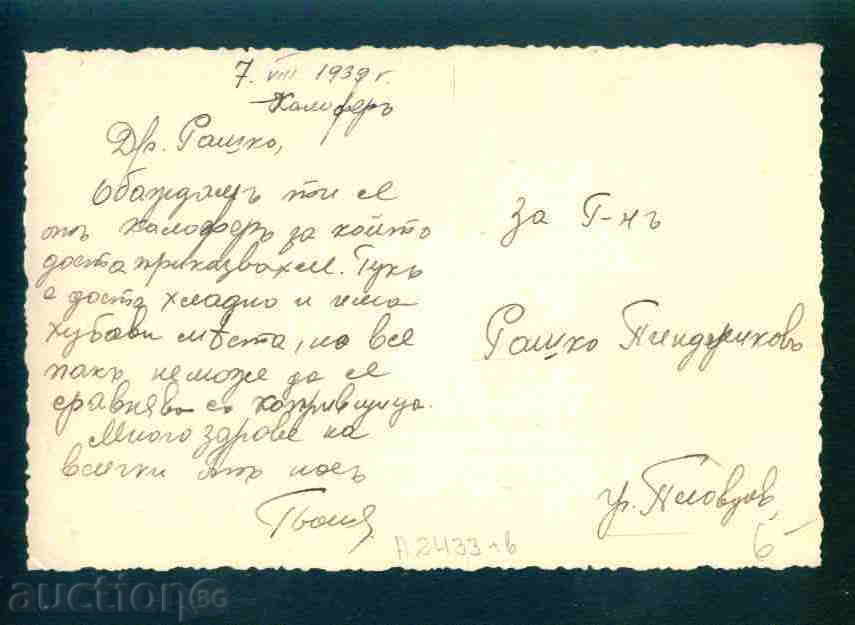 7. VIII 1939 г.
Калоферъ
Др. Рашко,
Обаждамъ ти се
отъ Калоферъ за който
доста приказвахме. Тукъ
е доста хладно и има
хубави мѣста, но все
пакъ неможе да се
сравнява съ Копривщица.
Много здраве на
всички отъ насъ
за Г-нъ
Рашко
гр. Пловдивъ
А2433-в
6-
auction BG